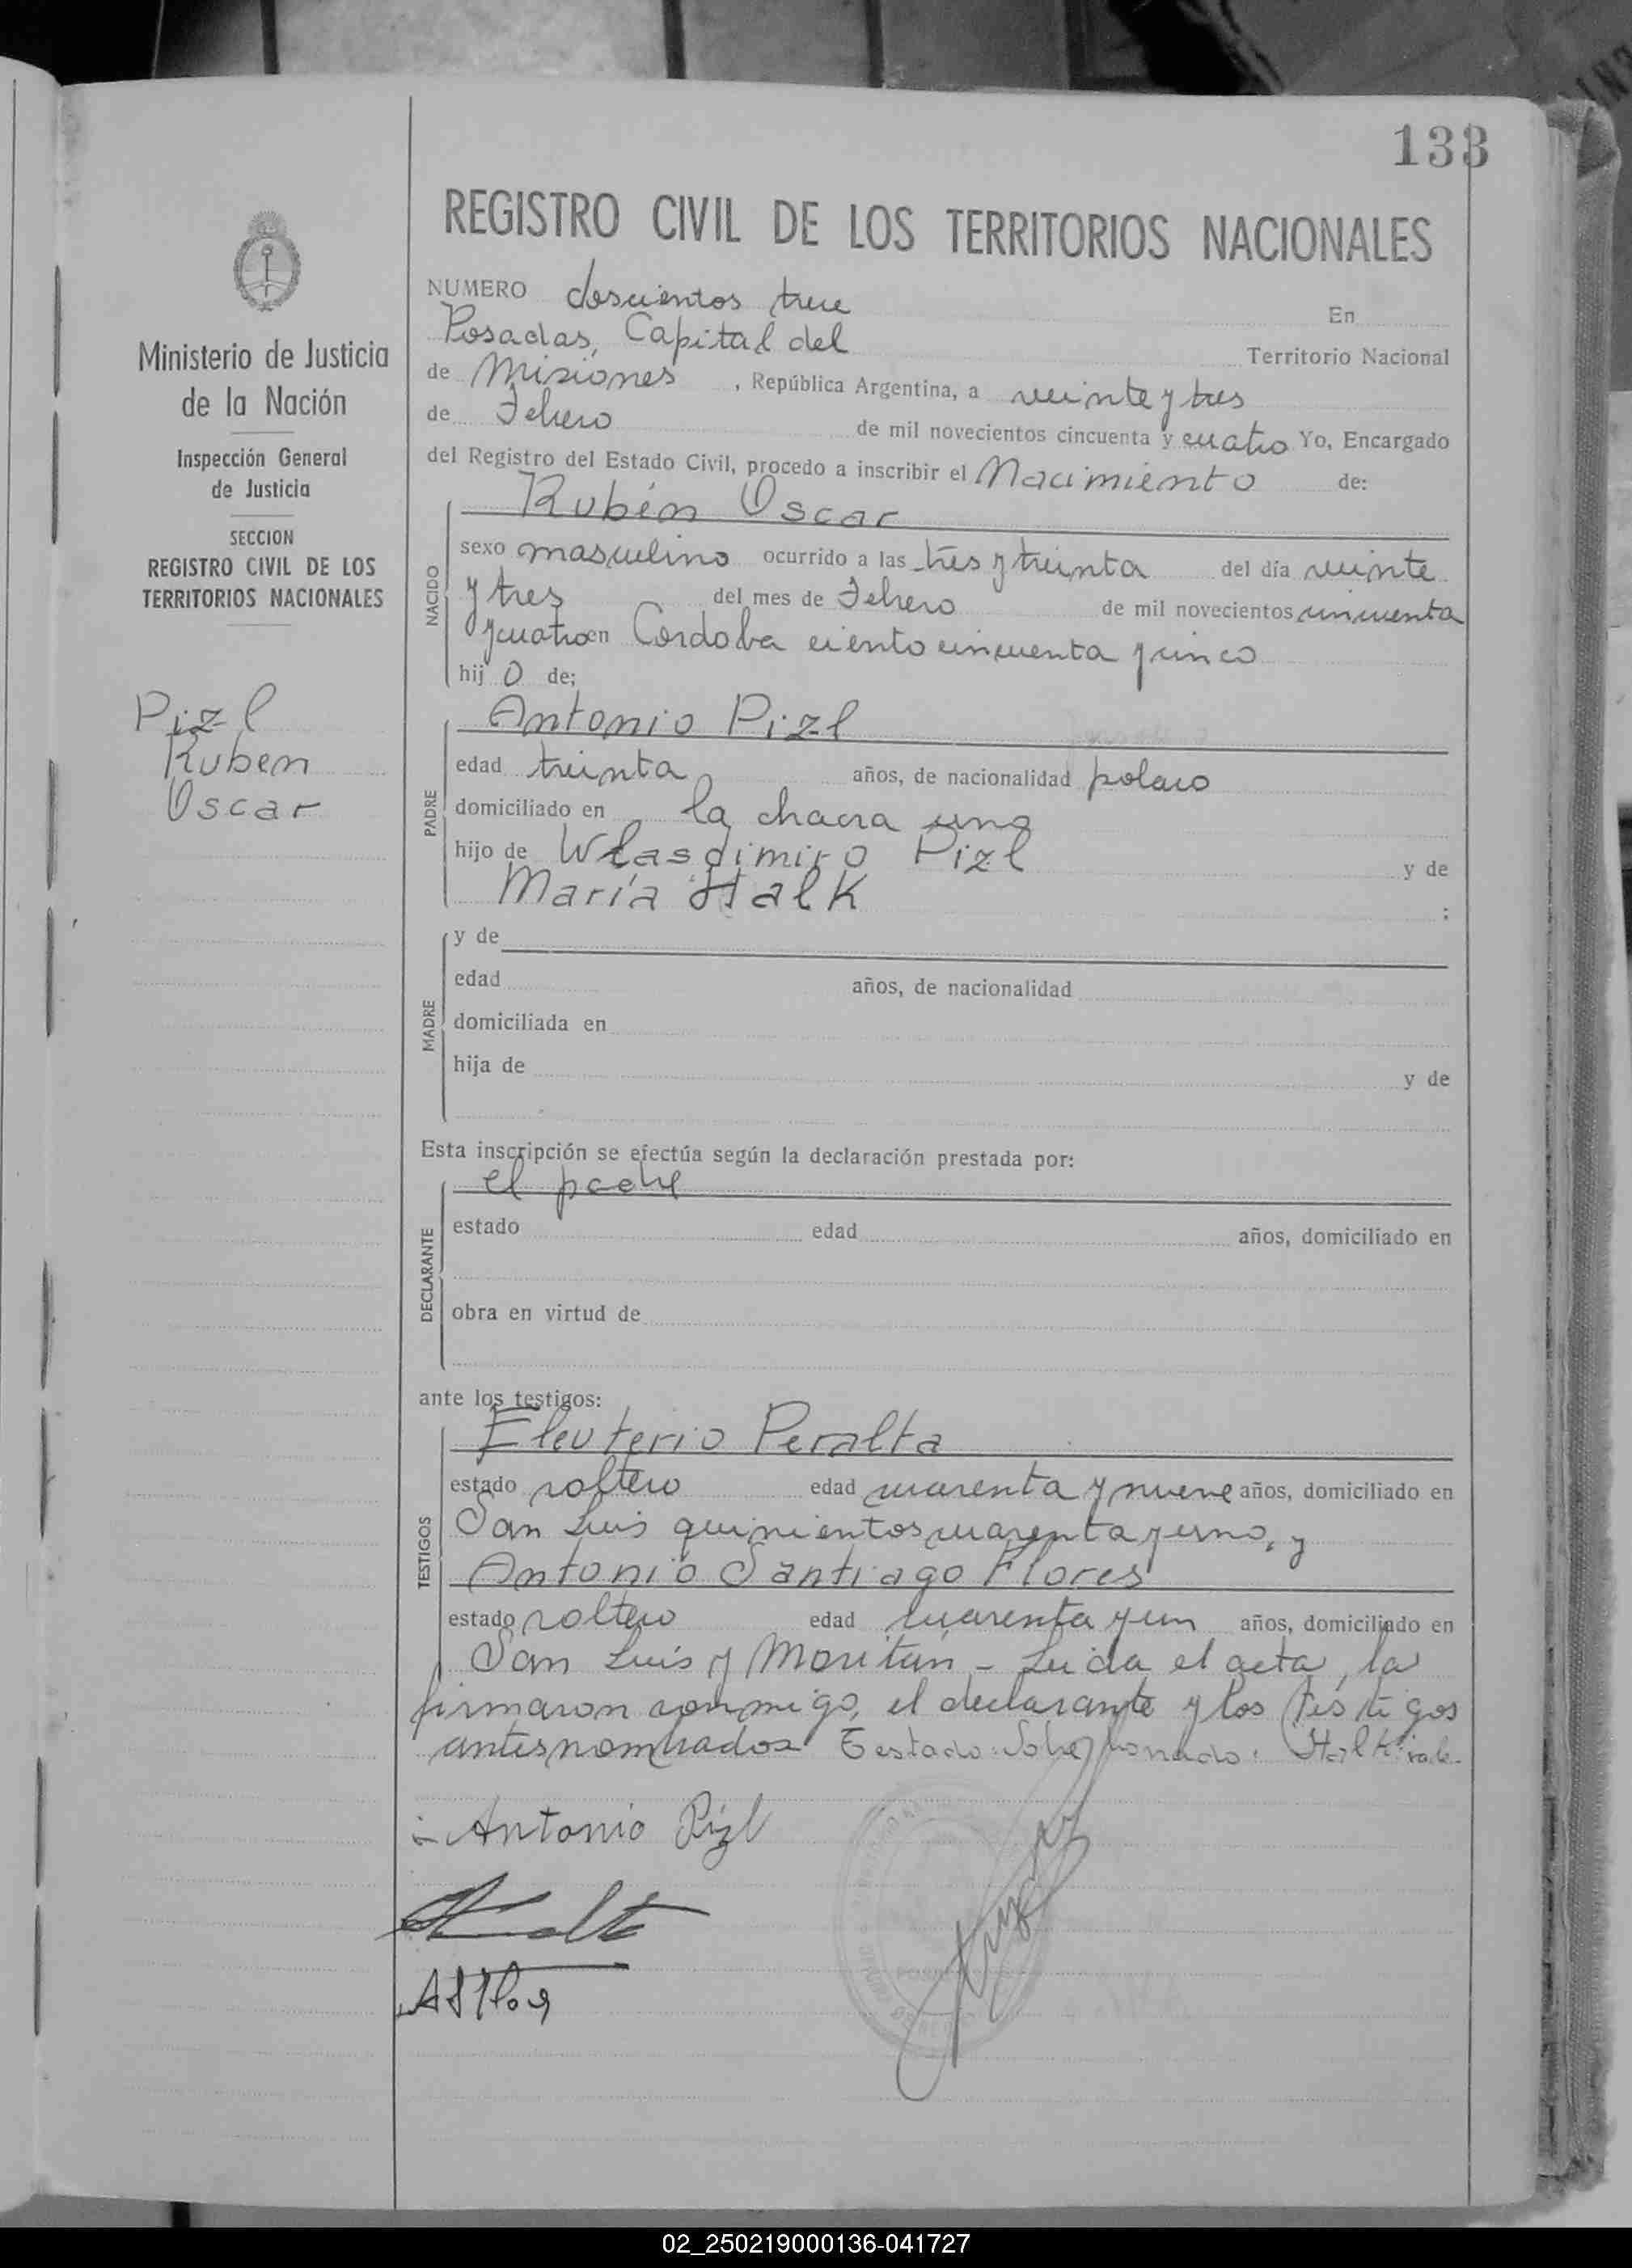 133
REGISTRO CIVIL DE LOS TERRITORIOS NACIONALES
Ministerio de Justicia
de la Nación
Inspección General
de Justicia
SECCION
REGISTRO CIVIL DE LOS
TERRITORIOS NACIONALES
Pizl
Ruben
Oscar
NUMERO doscientos trece En
Posadas, Capital del Territorio Nacional
de Misiones, República Argentina, a veinte y tres
de Febrero de mil novecientos cincuenta y cuatro Yo, Encargado
del Registro del Estado Civil, procedo a inscribir el Nacimiento de:
NACIDO
Rubén Oscar
sexo masculino ocurrido a las tres y treinta del día veinte
y tres del mes de Febrero de mil novecientos cincuenta
y cuatro en Cordoba ciento cincuenta y cinco
hij o de;
PADRE
Antonio Pizl
edad treinta años, de nacionalidad polaco
domiciliado en la chacra una
hijo de Wlasdimiro Pizl y de
María Halk ;
MADRE
y de
edad años, de nacionalidad
domiciliada en
hija de y de
Esta inscripción se efectúa según la declaración prestada por:
DECLARANTE
el padre
estado edad años, domiciliado en
obra en virtud de
ante los testigos:
TESTIGOS
Eleuterio Peralta
estado soltero edad cuarenta y nueve años, domiciliado en
San Luis quinientos cuarenta y uno, y
Antonio Santiago Flores
estado soltero edad cuarenta y un años, domiciliado en
San Luis y Moritán - Leida el acta, la
firmaron conmigo, el declarante y los testigos
antes nombrados Testado: Halk: vale-
Antonio Pizl
02_250219000136-041727